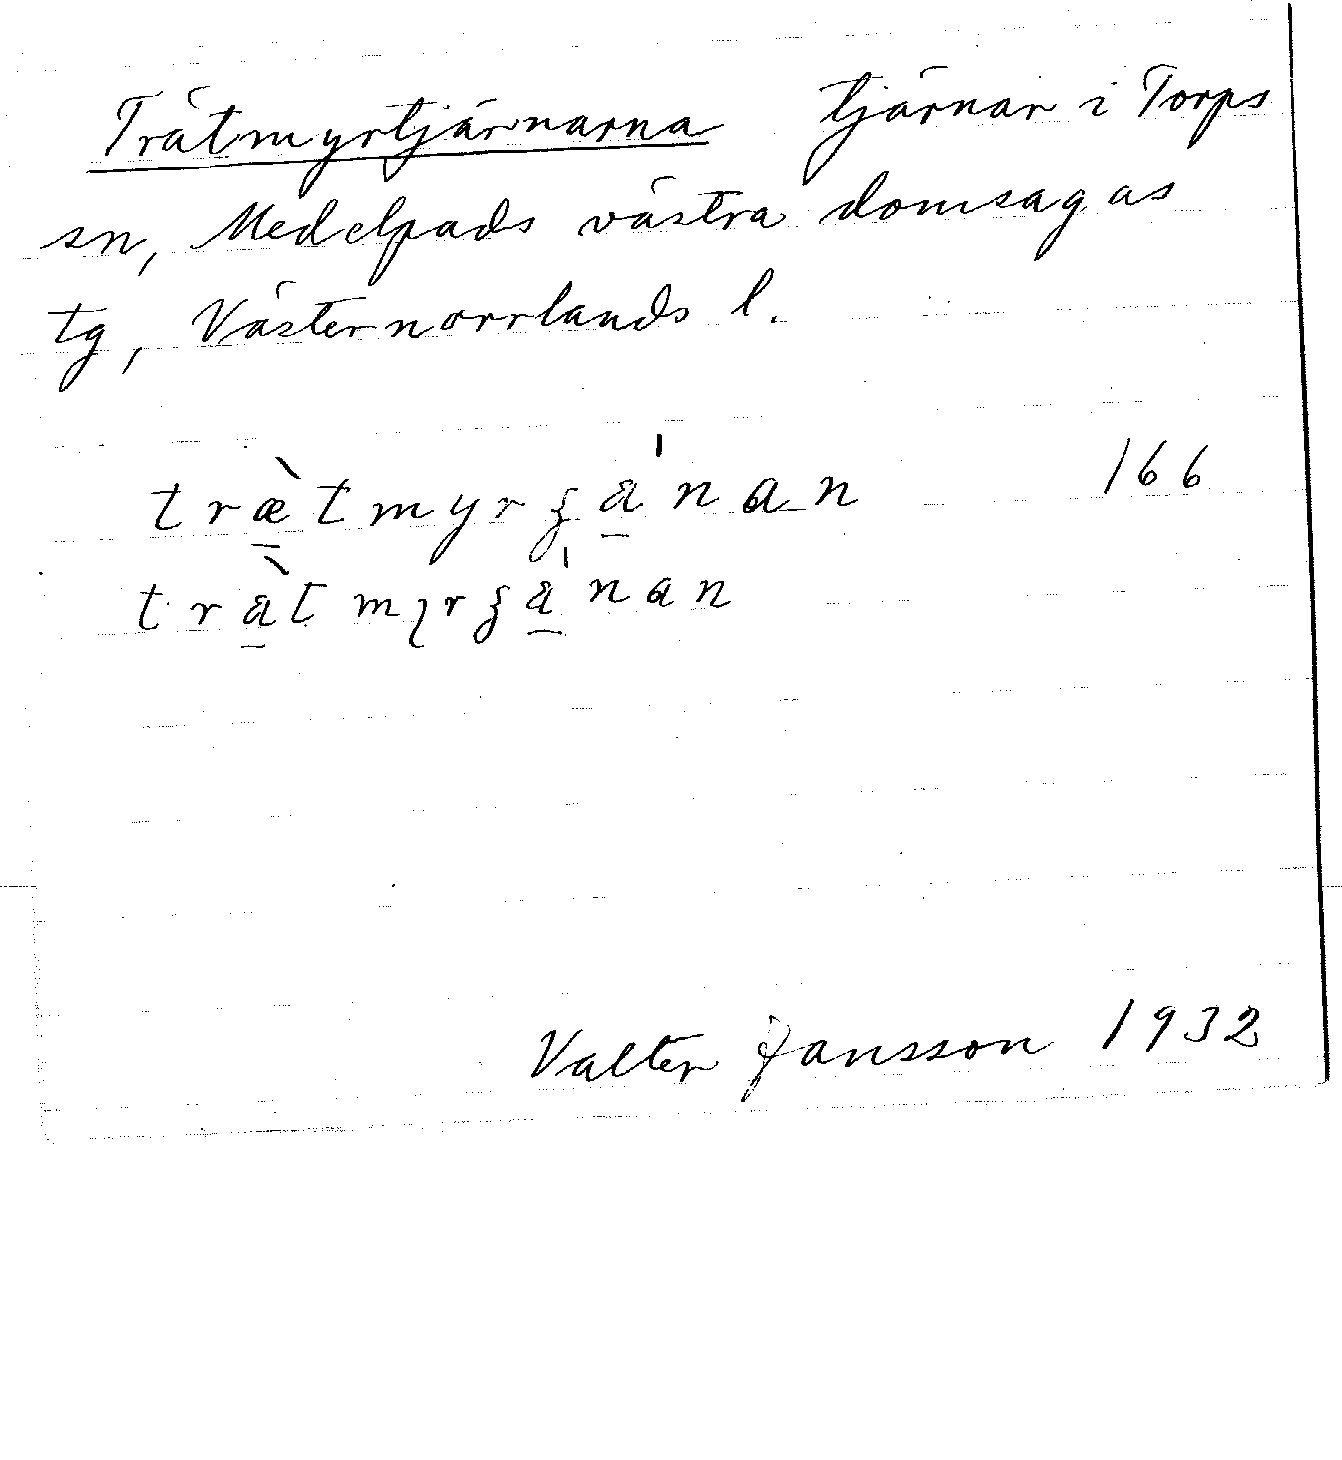 Trätmyrtjärnarna tjärnar i Torps
sn, Medelpads västra domsagas
tg, Västernorrlands l.
træ̠̀tmyrʒä̠́nan 166
trä̠̀tmʅrʒä̠́nan
Valter Jansson 1932